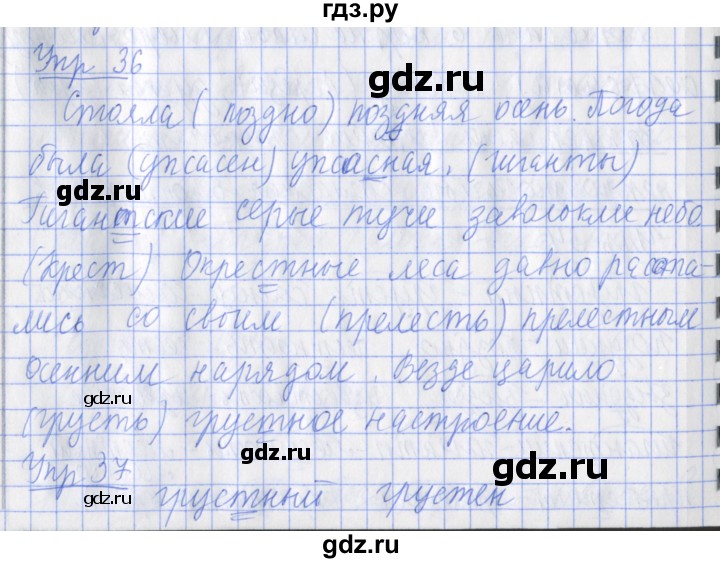 гдз.ру
Упр 36
gdz.ru
Стояла (поздно) поздняя осень. Погода
была (ужасен) ужасная. (гиганты)
gdz.ru
gdz.ru
Гигантские серые тучи заволокли небо
(крест) Окрестные леса давно расста-
лись со своим (прелесть) прелестным
осенним нарядом. Везде царило
gdz.ru
(грусть) грустное настроение.
gdz.ru
Упр 37
gdz.ru
gdz.ru
грустный грустен
gdz.ru